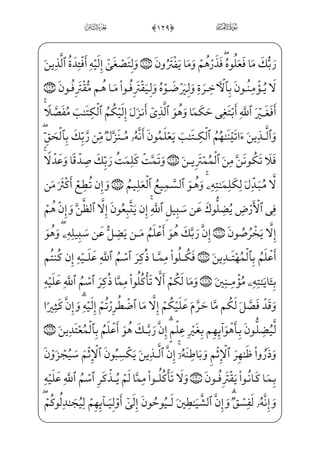 الجزء الثامن ﴿١٢٩﴾ سورة الأنعام
رَبُّكَ مَا فَعَلُوهُ ۖ فَذَرْهُمْ وَمَا يَفْتَرُونَ ١١٢ وَلِتَصْغَىٰٓ إِلَيْهِ أَفْـِٔدَةُ ٱلَّذِينَ
لَا يُؤْمِنُونَ بِٱلْـَٔاخِرَةِ وَلِيَرْضَوْهُ وَلِيَقْتَرِفُوا۟ مَا هُم مُّقْتَرِفُونَ ١١٣
أَفَغَيْرَ ٱللَّهِ أَبْتَغِى حَكَمًا وَهُوَ ٱلَّذِىٓ أَنزَلَ إِلَيْكُمُ ٱلْكِتَـٰبَ مُفَصَّلًا ۚ
وَٱلَّذِينَ ءَاتَيْنَـٰهُمُ ٱلْكِتَـٰبَ يَعْلَمُونَ أَنَّهُۥ مُنَزَّلٌ مِّن رَّبِّكَ بِٱلْحَقِّ ۖ
فَلَا تَكُونَنَّ مِنَ ٱلْمُمْتَرِينَ ١١٤ وَتَمَّتْ كَلِمَتُ رَبِّكَ صِدْقًا وَعَدْلًا ۚ
لَّا مُبَدِّلَ لِكَلِمَـٰتِهِۦ ۚ وَهُوَ ٱلسَّمِيعُ ٱلْعَلِيمُ ١١٥ وَإِن تُطِعْ أَكْثَرَ مَن
فِى ٱلْأَرْضِ يُضِلُّوكَ عَن سَبِيلِ ٱللَّهِ ۚ إِن يَتَّبِعُونَ إِلَّا ٱلظَّنَّ وَإِنْ هُمْ
إِلَّا يَخْرُصُونَ ١١٦ إِنَّ رَبَّكَ هُوَ أَعْلَمُ مَن يَضِلُّ عَن سَبِيلِهِۦ ۖ وَهُوَ
أَعْلَمُ بِٱلْمُهْتَدِينَ ١١٧ فَكُلُوا۟ مِمَّا ذُكِرَ ٱسْمُ ٱللَّهِ عَلَيْهِ إِن كُنتُم
بِـَٔايَـٰتِهِۦ مُؤْمِنِينَ ١١٨ وَمَا لَكُمْ أَلَّا تَأْكُلُوا۟ مِمَّا ذُكِرَ ٱسْمُ ٱللَّهِ عَلَيْهِ
وَقَدْ فَصَّلَ لَكُم مَّا حَرَّمَ عَلَيْكُمْ إِلَّا مَا ٱضْطُرِرْتُمْ إِلَيْهِ ۗ وَإِنَّ كَثِيرًا
لَّيُضِلُّونَ بِأَهْوَآئِهِم بِغَيْرِ عِلْمٍ ۗ إِنَّ رَبَّكَ هُوَ أَعْلَمُ بِٱلْمُعْتَدِينَ ١١٩
وَذَرُوا۟ ظَـٰهِرَ ٱلْإِثْمِ وَبَاطِنَهُۥٓ ۚ إِنَّ ٱلَّذِينَ يَكْسِبُونَ ٱلْإِثْمَ سَيُجْزَوْنَ
بِمَا كَانُوا۟ يَقْتَرِفُونَ ١٢٠ وَلَا تَأْكُلُوا۟ مِمَّا لَمْ يُذْكَرِ ٱسْمُ ٱللَّهِ عَلَيْهِ
وَإِنَّهُۥ لَفِسْقٌ ۗ وَإِنَّ ٱلشَّيَـٰطِينَ لَيُوحُونَ إِلَىٰٓ أَوْلِيَآئِهِمْ لِيُجَـٰدِلُوكُمْ ۖ